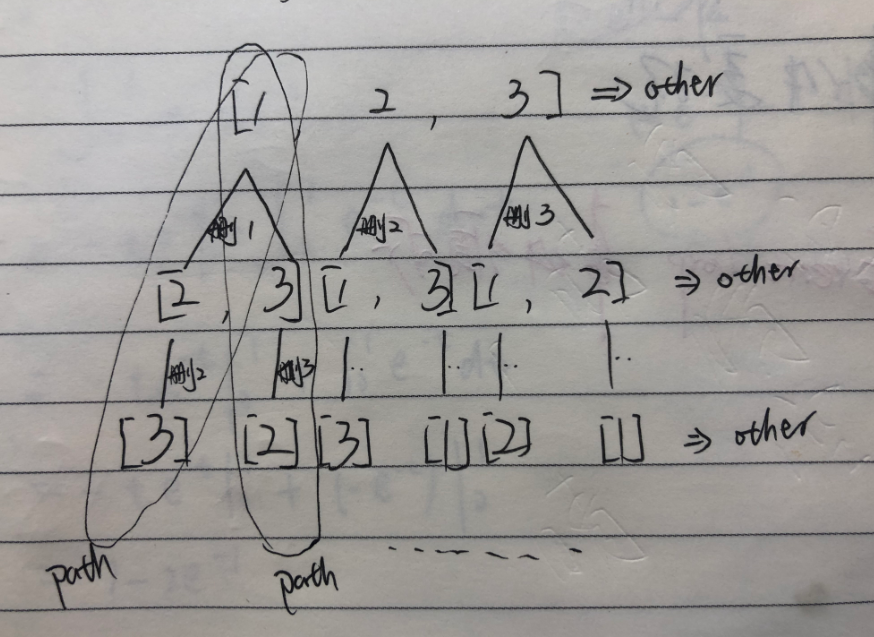 [1 2 , 3] ⇒ other
删1 删2 删3
[2 , 3] [1 , 3] [1 , 2] ⇒ other
删2 删3 ·· ·· ·· ··
[3] [2] [3] [1] [2] [1] ⇒ other
path path